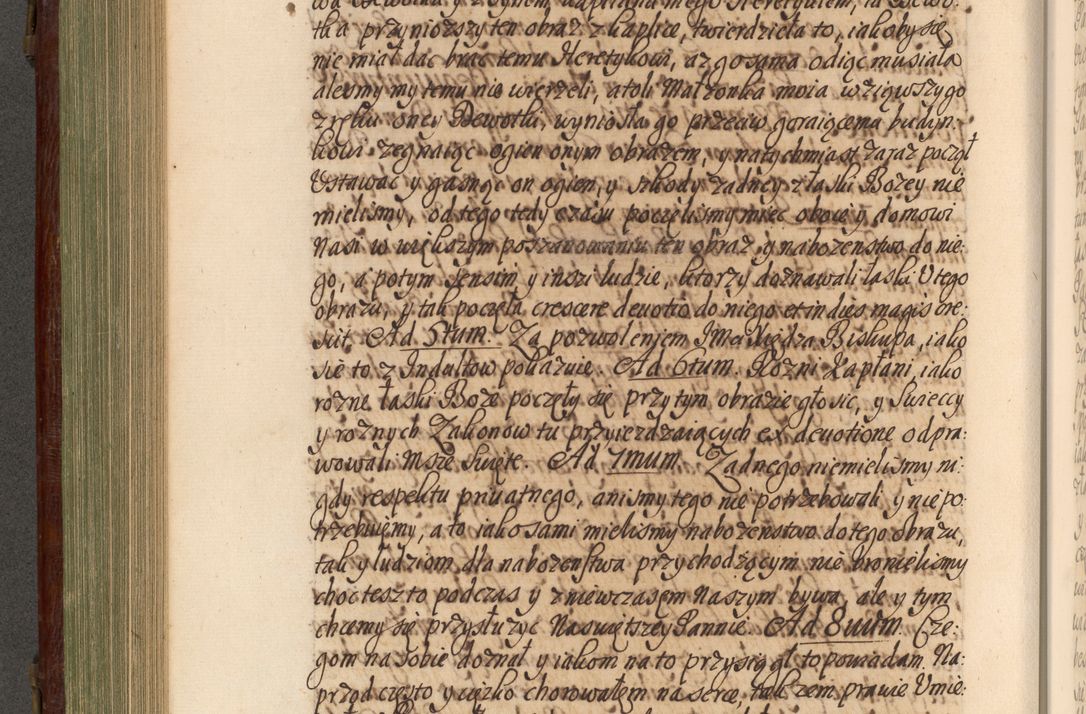 tka przyniozszy ten obraz z kaplice, twierdziela to, iakoby się
nie miał dac brac temu Heretykowi, az go sama odiąc musiała
alesmy my temu nie wierzeli, a toli Małzonka moia wziąwszy go
z ręku oney Dewotki, wyniosła go przeciw goraiącemu budyn:
kowi zegnaiąc ogien onym obrazem, y natychmiast zaraz począł
Ustawac y gasnąc on ogien, y szkody zadney z łaski Bozey nie
mielismy, od tego tedy czasu poczęlismy miec oboie y domowi
Nasi w większym poszanowaniu ten obraz y nabozenstwo do nie:
go, a potym sensim y inszi ludzie, ktorzy doznawali łaski U tego
obrazu, y tak poczęła crescere deuotio do niego et in dies magis cre:
uit. Ad 5tum. Za pozwoleniem JMci Xiędza Biskupa, iako
się to z Indultow pokazuie. Ad 6tum. Rozni Kapłani, iako
rozne łaski Boze poczęły się przy tym obrazie głosic, y Swieccy
y roznych Zakonow tu przyiezdzaiących ex deuotione odpra:
wowali Msze Swięte. Ad 7mum. Zadnego niemielismy ni:
gdy respektu priuatnego, anismy tego nie potrzebowali y nie po:
trzebuiemy, a to iako sami mielismy nabozenstwo do tego obrazu,
tak y ludziom dla nabozenstwa przychodzącym nie bronielismy
choc tesz to podczas y z niewczasem Naszym bywa, ale y tym
chcemy się przysłuzyc Naswiętszey Pannie. Ad 8uum. Cze:
gom na sobie doznał y iakom na to przysiągł to powiadam. Na:
przod często y cięzko chorowałem na serce, tak zem prawie Umie: